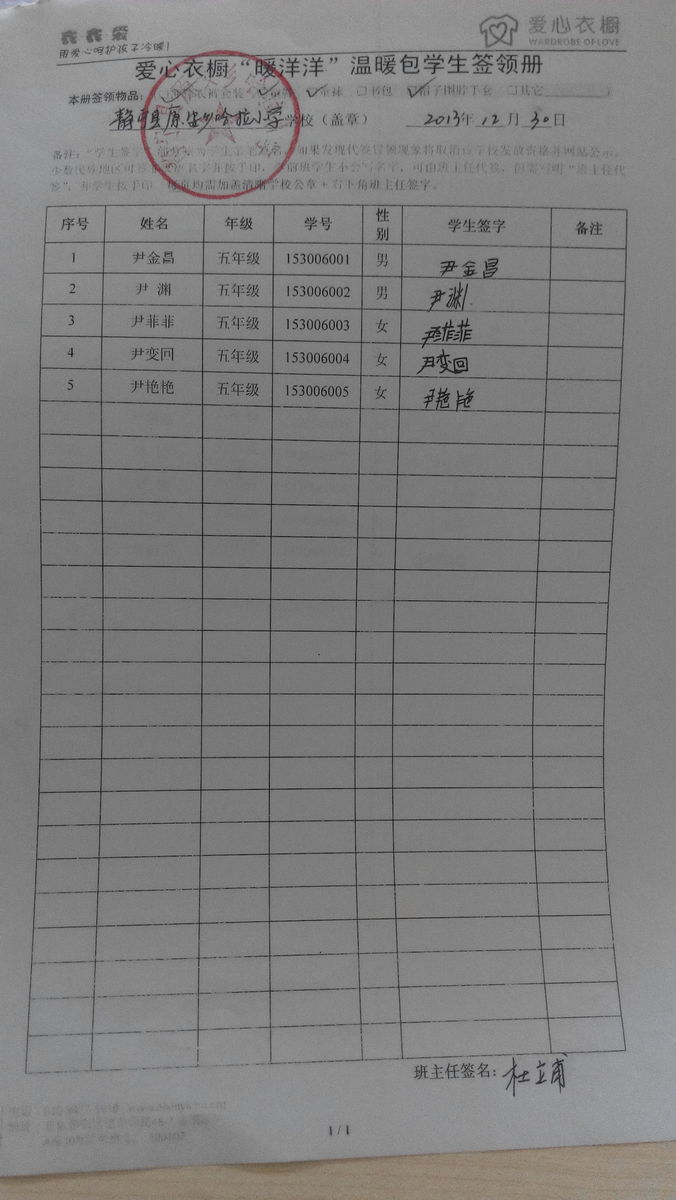 衣衣爱
用爱心呵护孩子冷暖!
爱心衣橱
WARDROBE OF LOVE
爱心衣橱“暖洋洋”温暖包学生签领册
本册签领物品:
童袜 □书包 帽子围脖手套 □其它
静宁县原安乡哈拉小学 学校（盖章） 2013年12月30日
如果发现代签冒领现象将取消该学校发放资格并网站公示。
少数民族地区可 名字并按手印。学前班学生不会写名字，可由班主任代签，但需写明“班主任代
签”，并学生按手印。每页均需加盖清晰学校公章+右下角班主任签字。
序号 姓名 年级 学号 性别 学生签字 备注
1 尹金昌 五年级 153006001 男 尹金昌
2 尹 渊 五年级 153006002 男 尹渊
3 尹菲菲 五年级 153006003 女 尹菲菲
4 尹变回 五年级 153006004 女 尹变回
5 尹艳艳 五年级 153006005 女 尹艳艳
班主任签名: 杜立甫
1 / 1